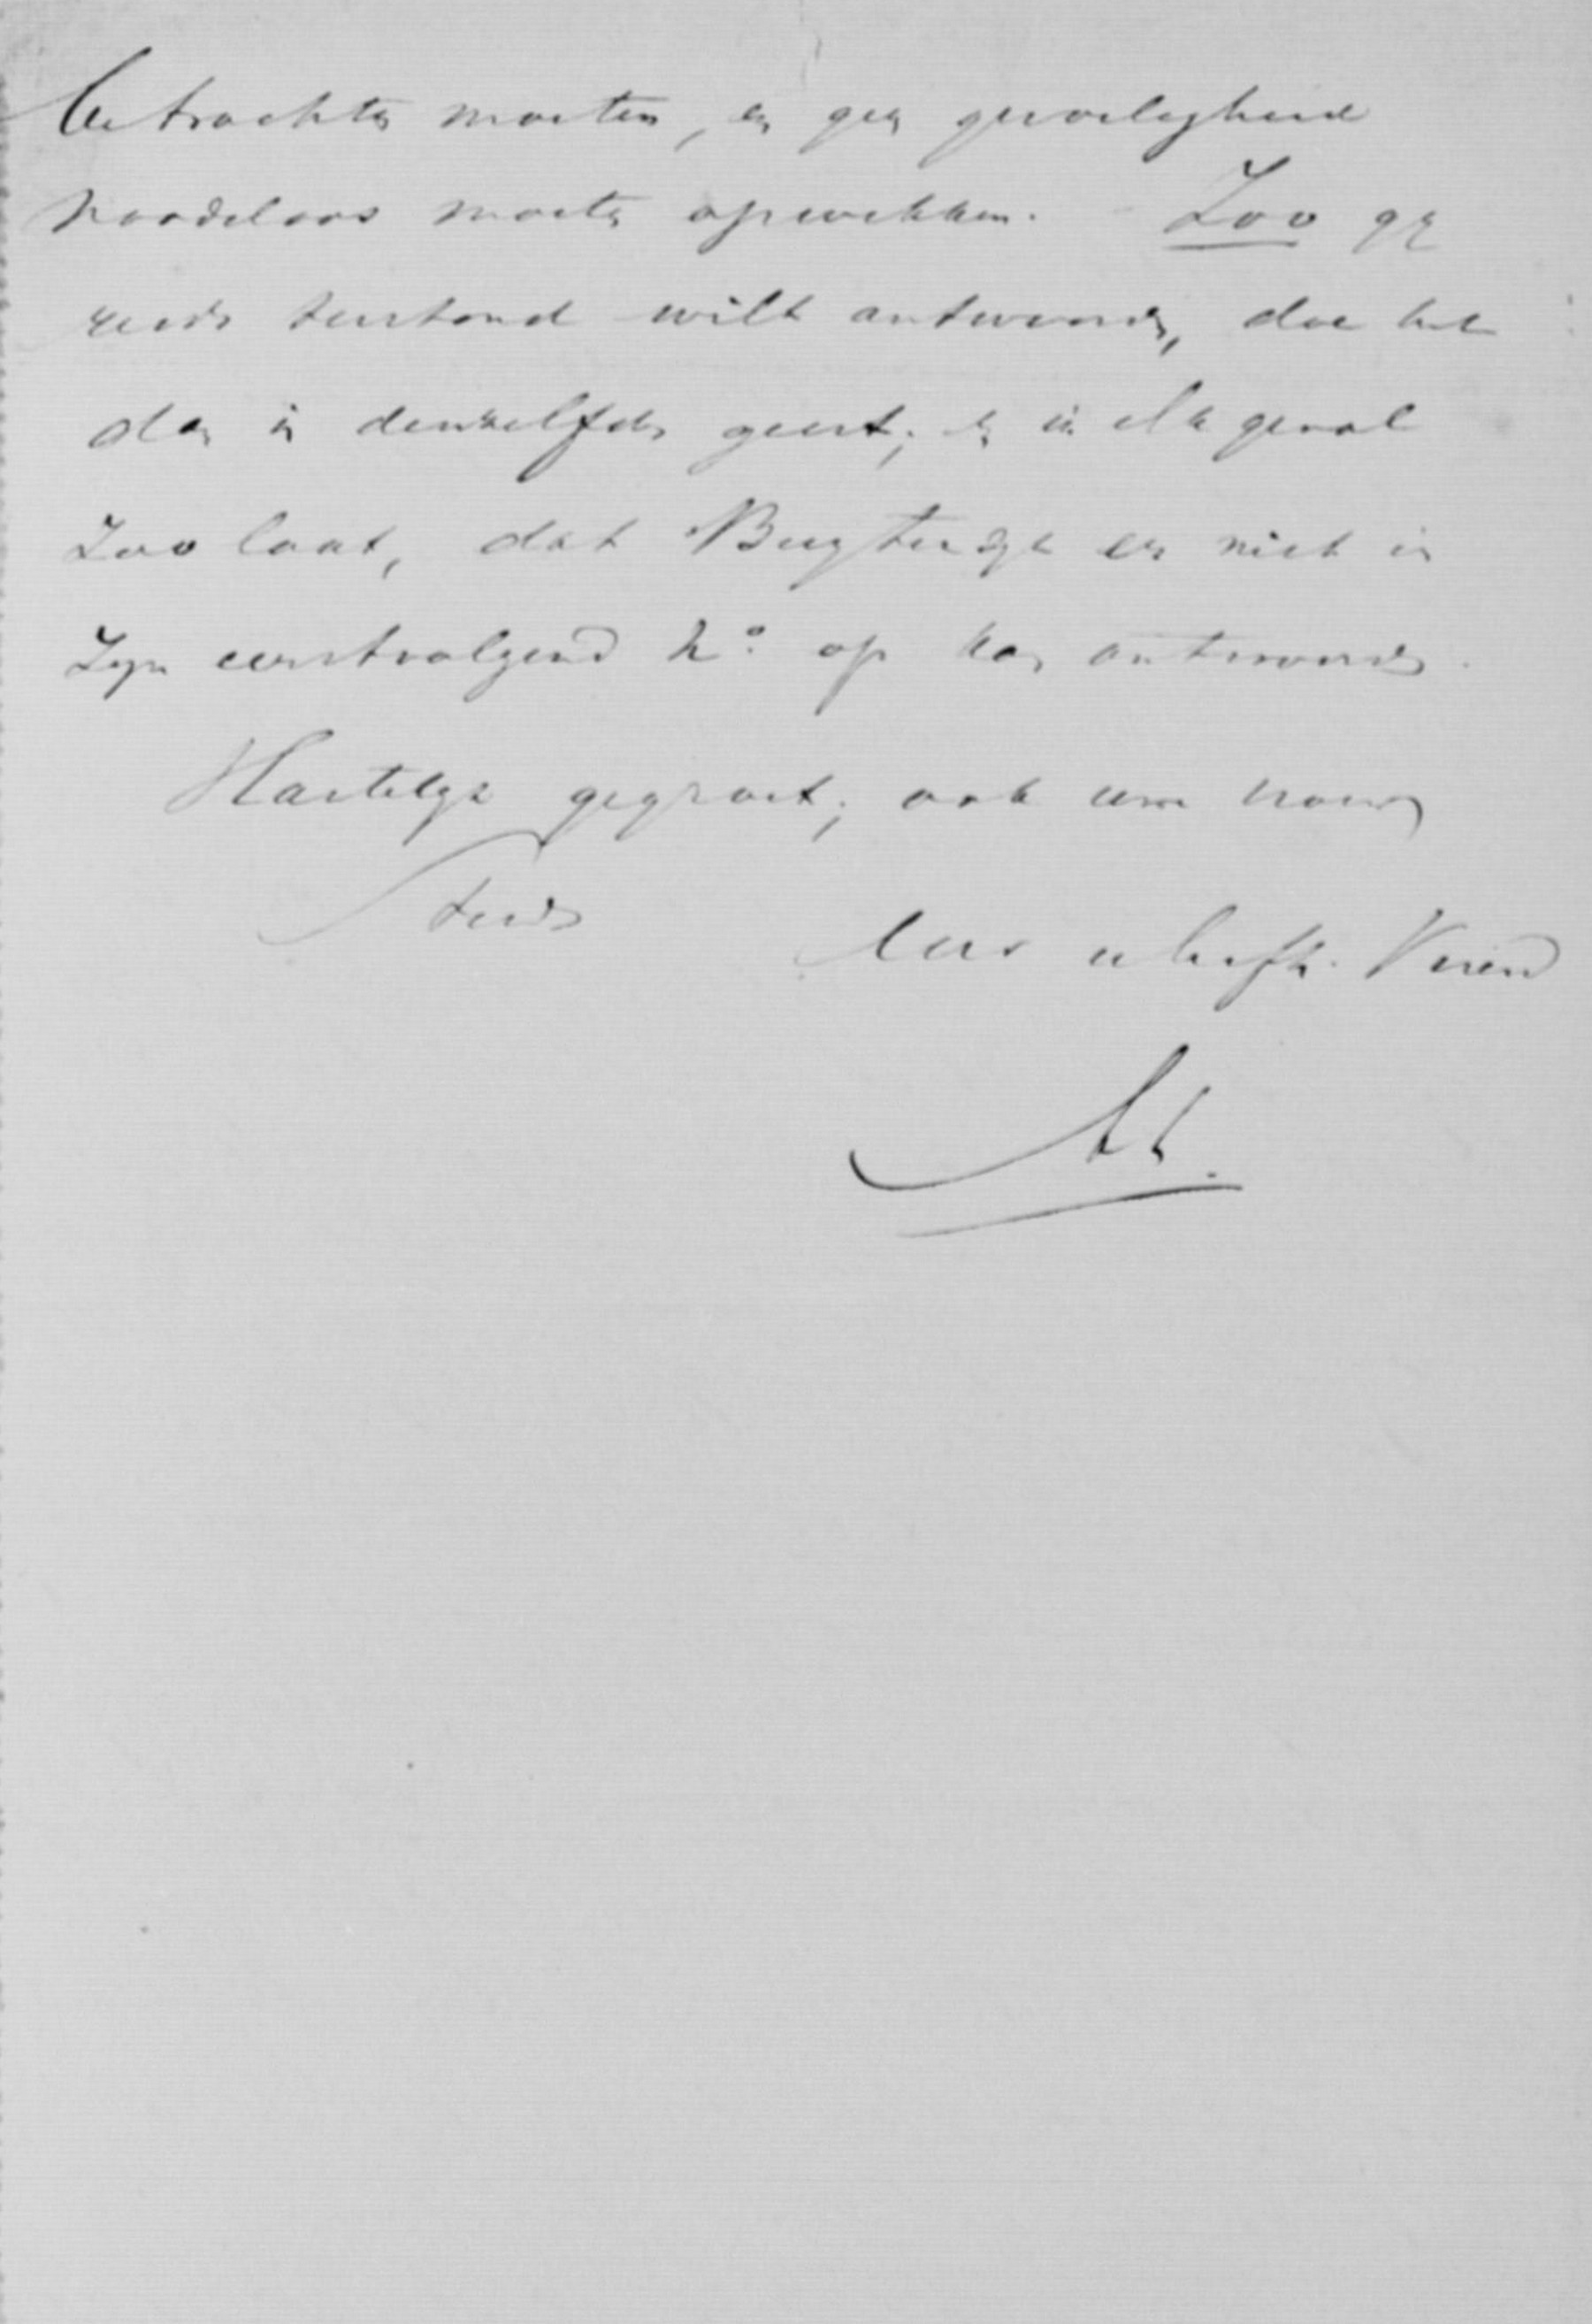 betrachten moeten, en geen gevoeligheid
noodeloos moeten opwekken. - Zoo gy
reeds terstond wilt antwoorden, doe het
dan in denzelfden geest; en in elk geval
zoo laat, dat Buytendyk er niet in
zyn eerstvolgend No. op kan antwoorden.
Hartelyk gegroet; ook uwe vrouw
Steeds
Uw Vriend